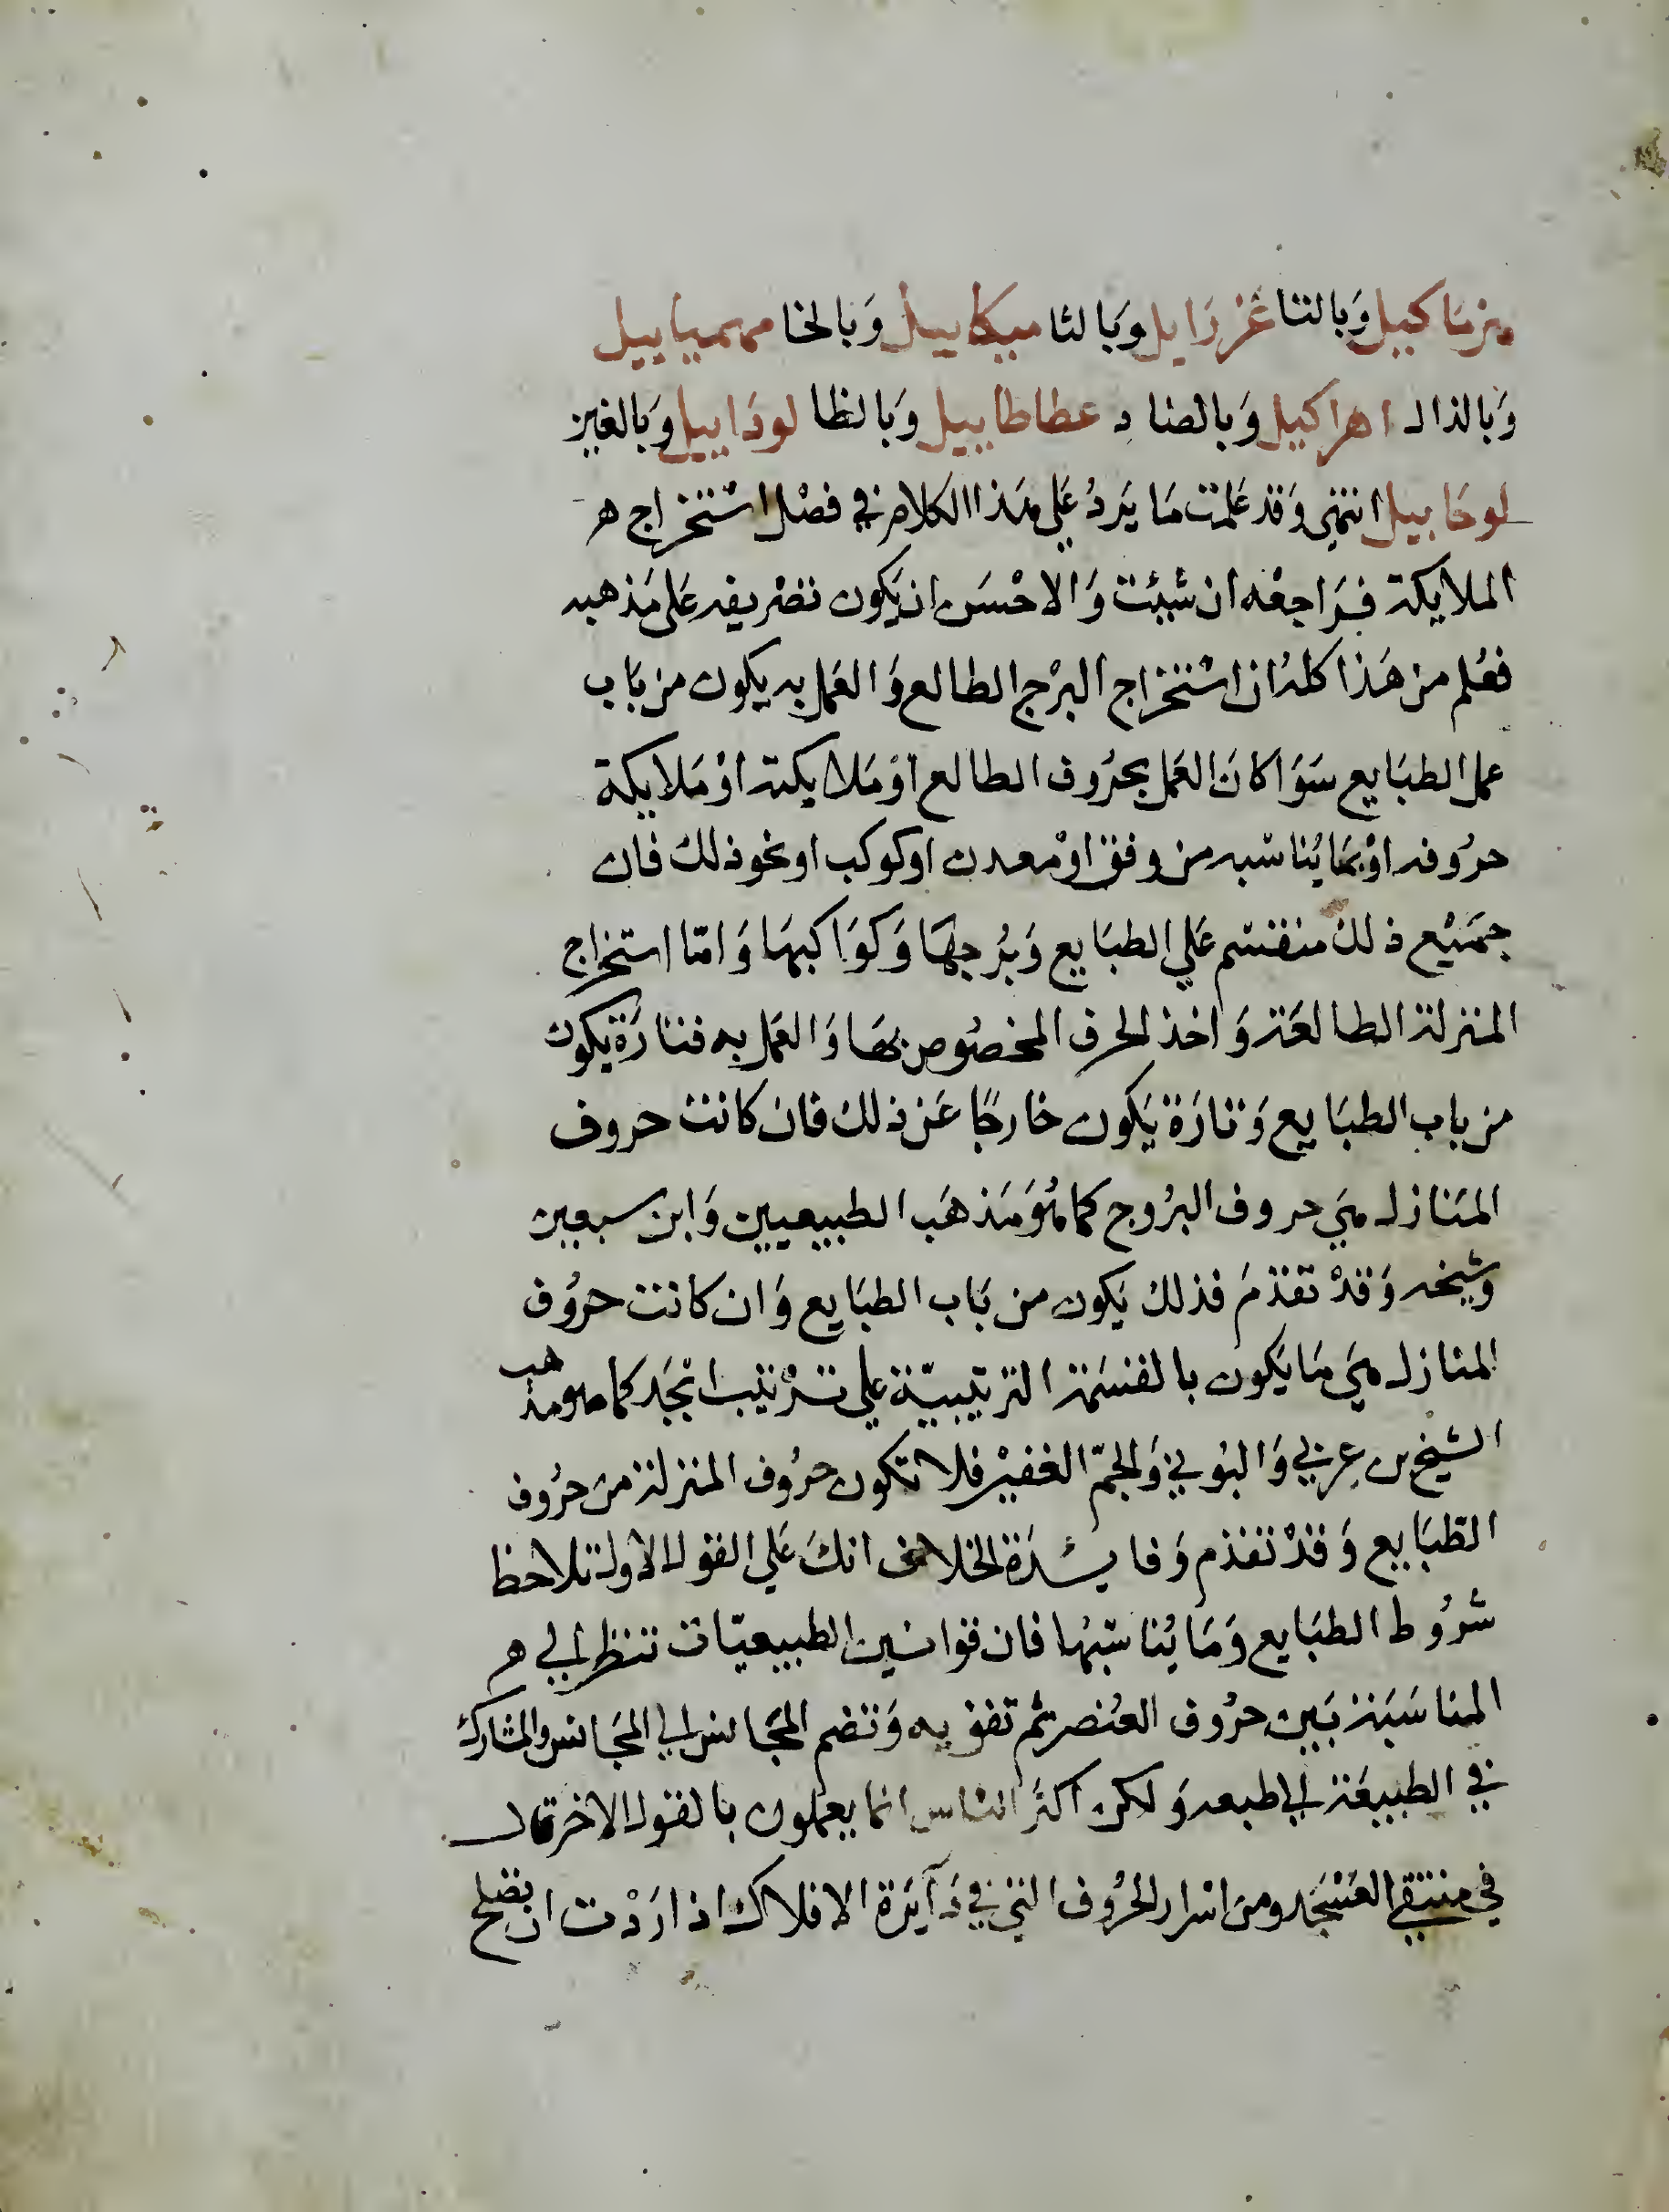 هزساكبيل وَبالتا عَزرَاييل وَبالثا ميكاييل وَبالخا مهمياييل
وَبالذال اهراكيل وَبالضاد عطاطاييل وَبالظا لوَداييل وَبالغين
لوخاييل انتهي وَقد عَلمت مَا يَردُ عَلي هَذا الكلام في فصْل اسْتخراج ه
الملايكة فرَاجعْه ان شيئت وَالاحْسَن ان يَكون تصْريفه عَلي مَذهبه
فعُلم من هَذا كله ان اسْتخرَاج البرْج الطالع وَالعَمل به يكون من بَاب
عمل الطبَايع سَوَا كانَ العَمل بحرُوف الطالع اوْ مَلايكته اوْ مَلايكة
حرُوفه اوْ بمَا يُناسبه من وفق اوْ معدن او كوكب او نحو ذلك فان
جمَيْع ذلك منقسم عَلي الطبَايع وَبرُجهَا وَكوَاكبهَا وَامّا استخراج
المنزلة الطالعَة وَاخذ الحرف المخصُوص بهَا وَالعَمل به فتارَة يكون
من باب الطبَايع وَتارَة يَكون خارجًا عَن ذلك فان كانت حروف
المَنازل هيَ حروف البرُوج كما هُوَ مَذهَب الطبيعيين وَابن سبعين
وشيخه وَقدْ تقدّمَ فذلك يَكون من بَاب الطبَايع وَان كانت حرُوف
المنازل هيَ مَا يَكون بالقسَمة الترتيبيّة علي ترْتيب ابْجَد كما هو مذهب
الشيخ بن عربي وَالبُوني وَالجمّ الغفيْر فلا تكون حرُوف المنزلة من حرُوف
الطبَايع وَقدْ تقدّم وَفايدَة الخلاف انكَ عَلي القول الاول تلاحظ
شرُوط الطبَايع وَمَا يُناسبَها فان قوانين الطبيعيّات تنظر الي ه
المناسَبَة بَين حرُوف العُنصر ثم تفق به وَتضم المجَانس الي المجَانس والمشارك
في الطبيعَة الي طبعه وَلكن اكثَر الناس انما يعملون بالقول الاخر قال
في منتقي العَسْجَد ومن اسْرار الحرُوف التي في دَآيرَة الافلاك اذا ارَدْت ان تصْلح